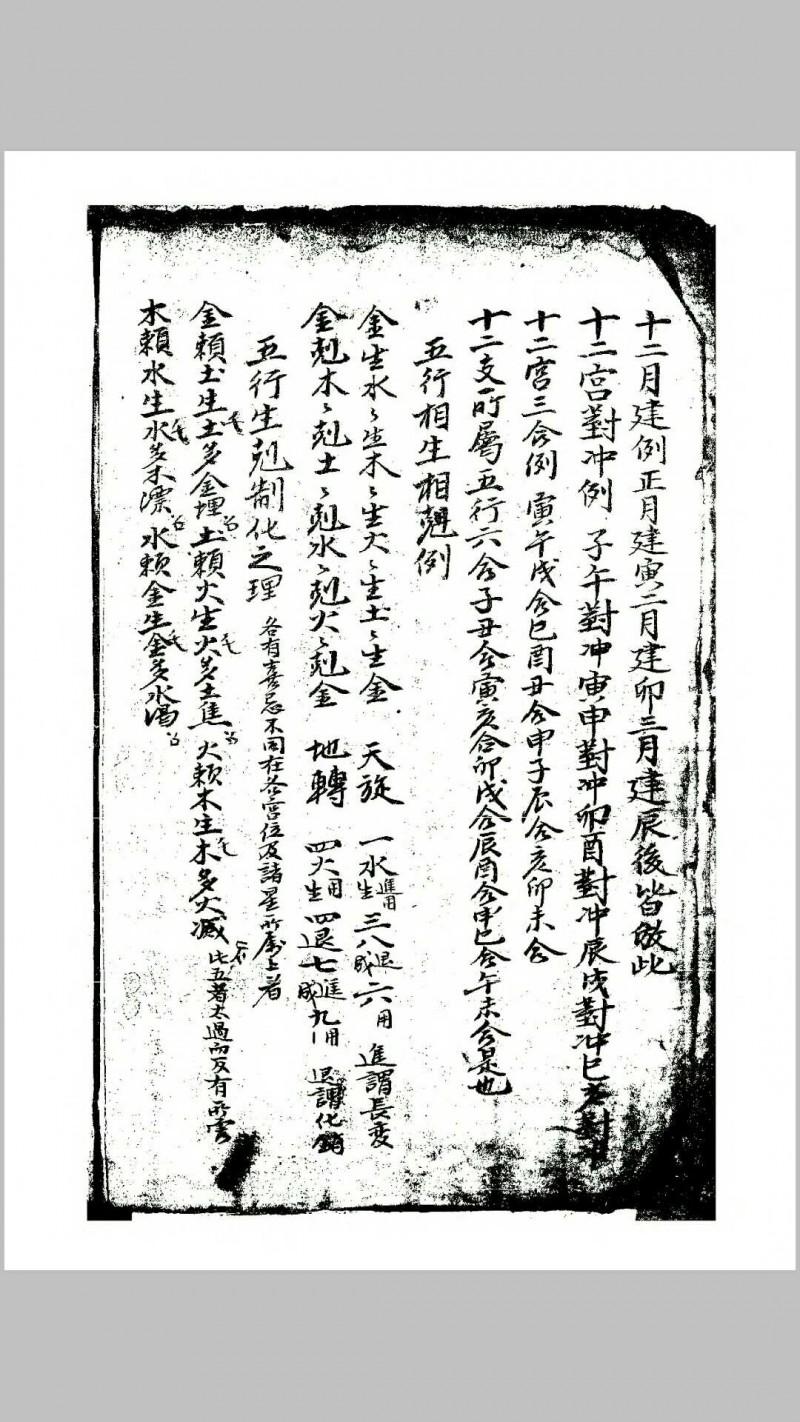 十二月建例正月建寅二月建卯三月建辰後皆倣此
十二宮對冲例 子午對冲寅申對冲卯酉對冲辰戌對冲巳亥對冲
十二宮三合例 寅午戌合巳酉丑合申子辰合亥卯未合
十二支所屬五行六合子丑合寅亥合卯戌合辰酉合申巳合午未合是也
五行相生相尅例
金生水〻生木〻生火〻生土〻生金 天旋 一水生進用三八成退六用 進謂長変
金尅木〻尅土〻尅水〻尅火〻尅金 地轉 四火生用四退七成進九用 退謂化銷
五行生尅制化之理 各有喜忌不同在各宮位及諸星所属上者
金賴土生土多金埋 土賴火生火多土焦 火賴木生木多火滅 此五者太過而反有所害
木賴水生水多木漂 水賴金生金多水濁